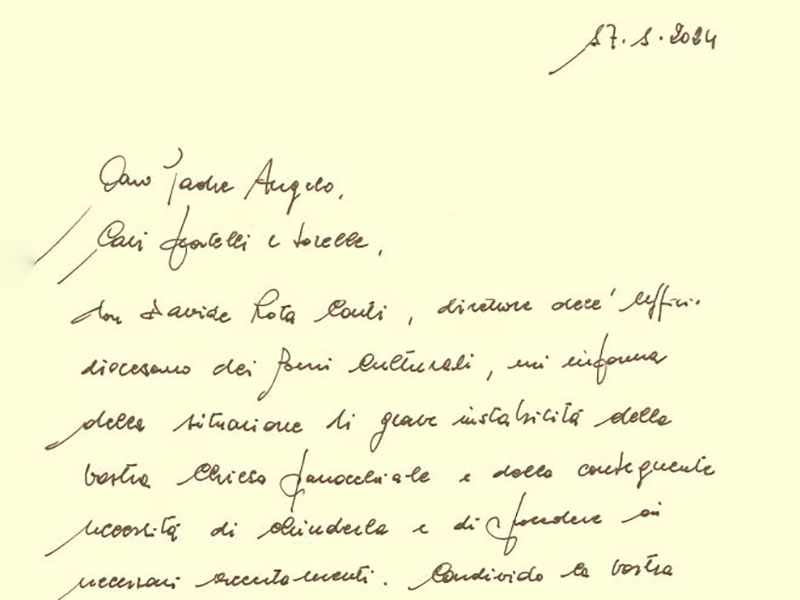 17.1.2024
Caro Padre Angelo,
Cari fratelli e sorelle,
don Davide Rota Conti, direttore dell'Uffici.
diocesano dei Beni Culturali, mi informa
della situazione di grave instabilità della
vostra Chiesa parrocchiale e della conseguente
necessità di chiuderla e di procedere ai
necessari accertamenti. Condivido la vostra